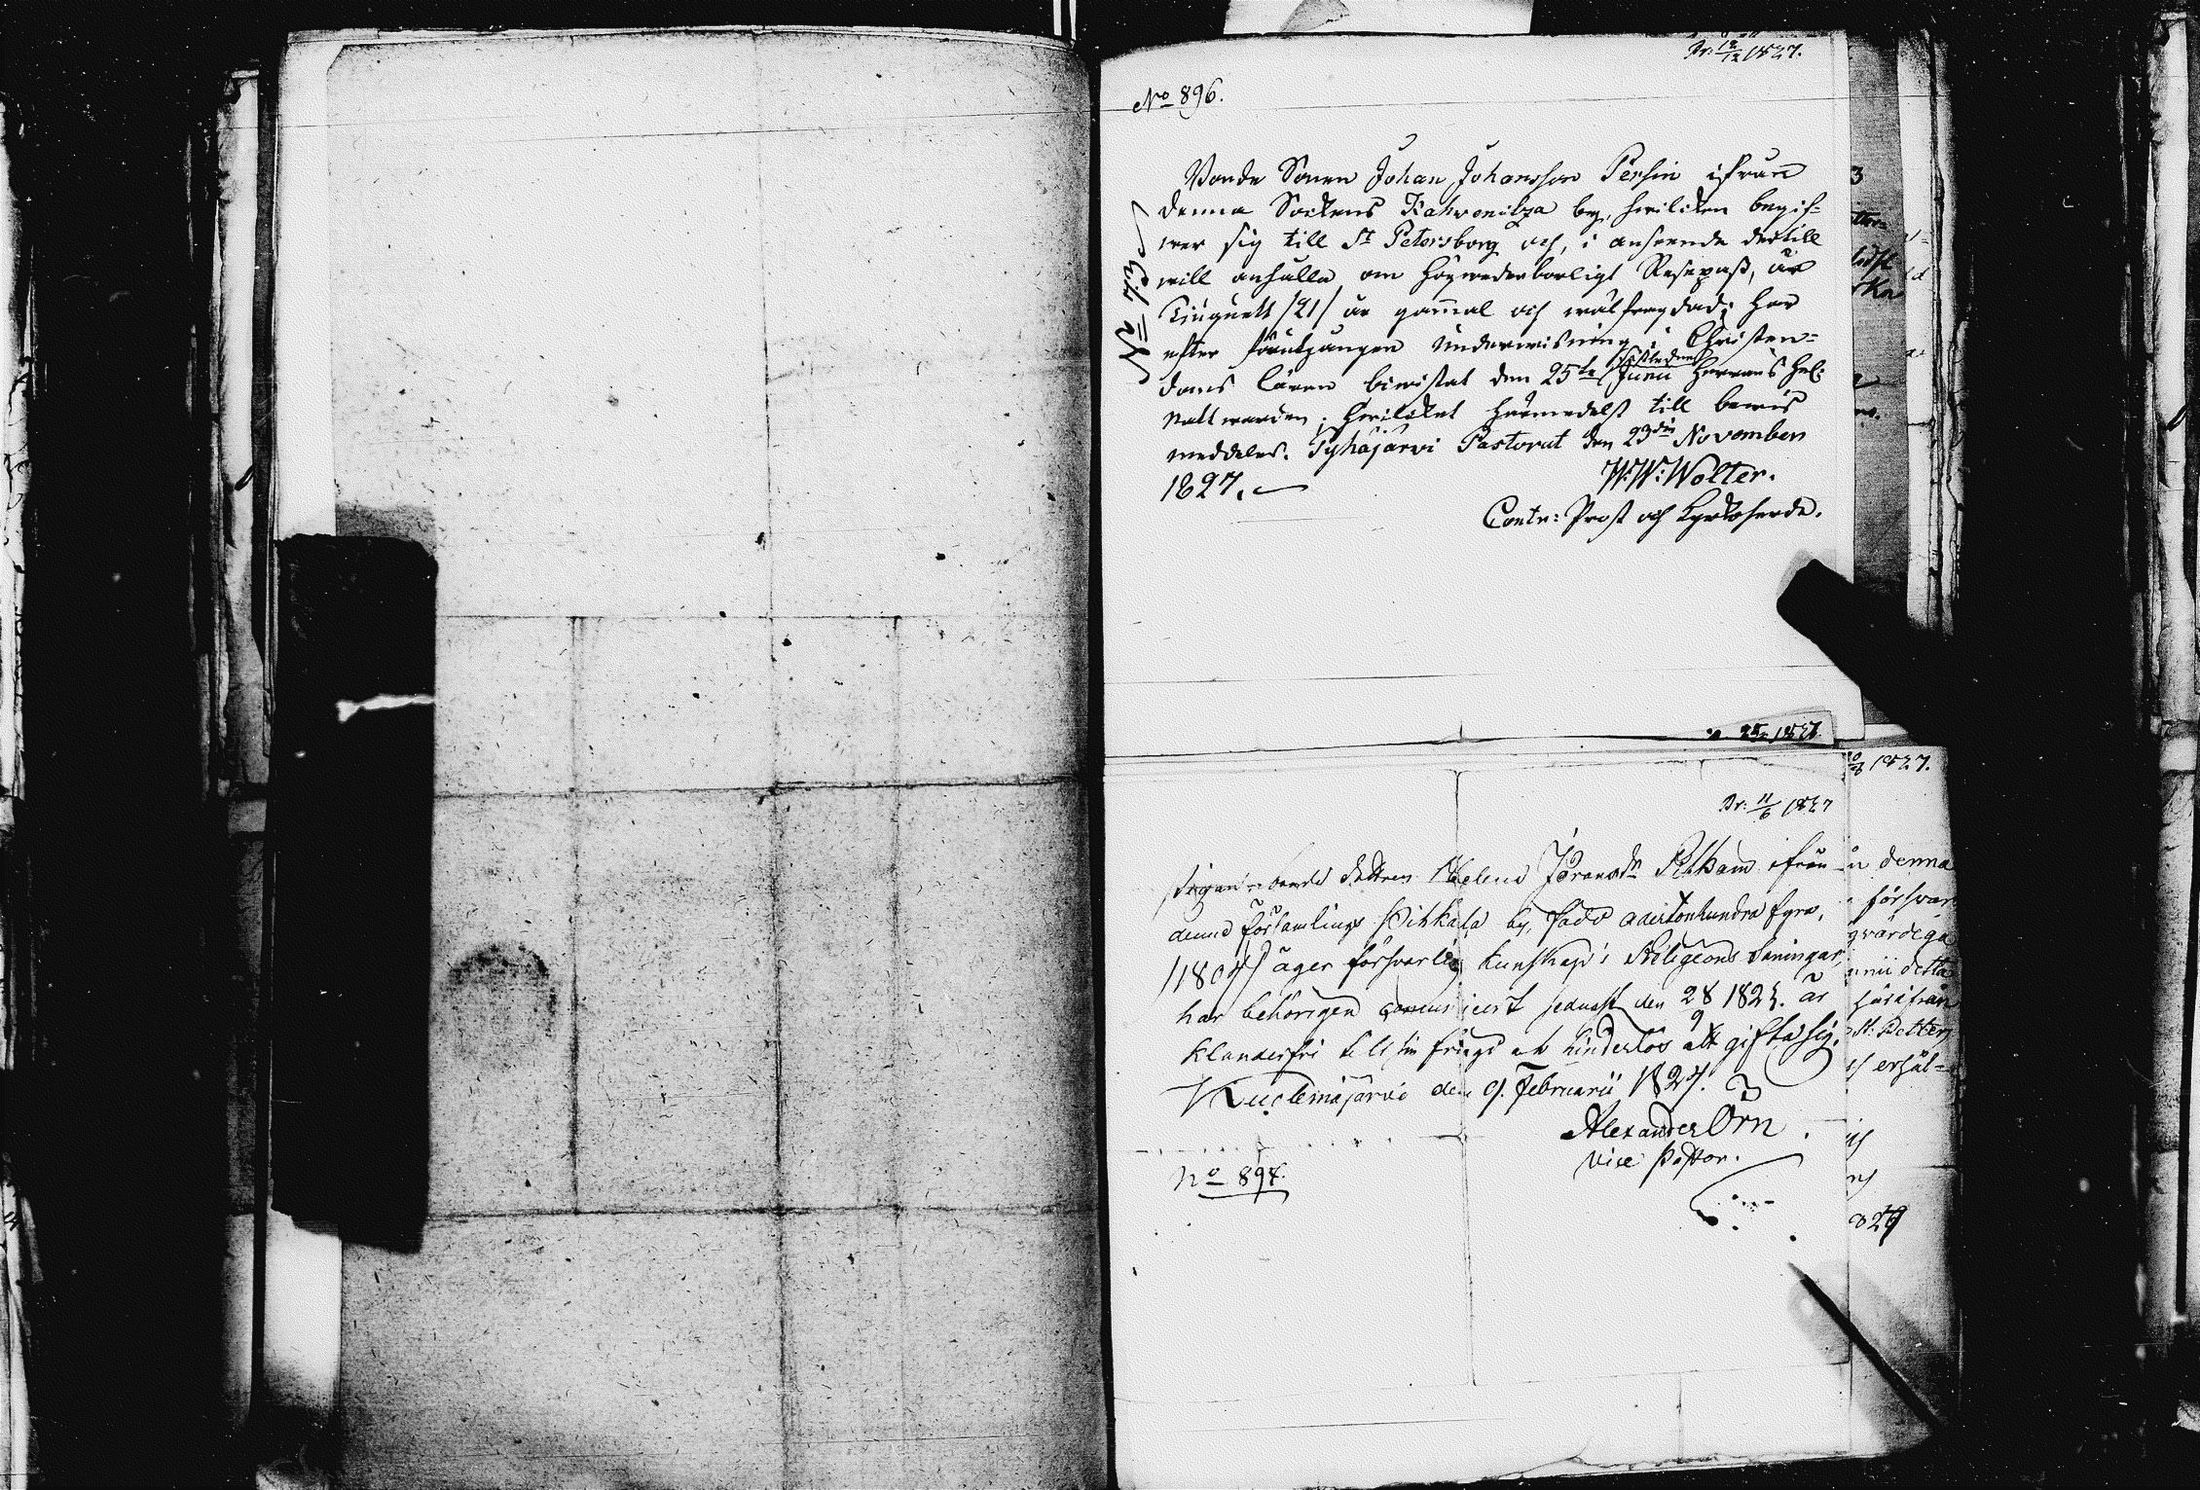 Pr: 12/12 1827.
No 896.
Bonde Sonen Johan Johansson Persin ifrån
denna Sockens Kahvenitza by, hvilcken begif=
wer sig till St Petersborg och, i anseende dertill
will anhålla om Högwederbörligt Resepass, är
Tiuguett /21/ år gammal och wälfrägdad; har
efter föregången underwisning i Christen=
doms läran biwistat den 25te sistledne Junii Herrans Hel:
Nattwarden; hwilcket härmedelst till bewis
meddelas. Pyhäjärwi Pastorat den 23die November
1827.
W: W: Wolter.
Contr: Prost och Kyrkoherde.
25 1827.
1827.
Pr: 11/6 1827
Pigan bonde dottren Helena Jöransdr ifrån
denna församlings Pihkala by, född adertonhundra fyra,
/1804/ äger försvarlig kunskap i Religions sanningar,
har behörigen communicerat senast den 28/9 182. är
klanderfri till sin frägd och hinderlös att gifta sig.
Kuolemajärvi den 9. Februarii 1827.
Alexander Örn
Vice Pastor.
No 894.
denna
försvar
detta
härifrån
St: Petters
erhål=